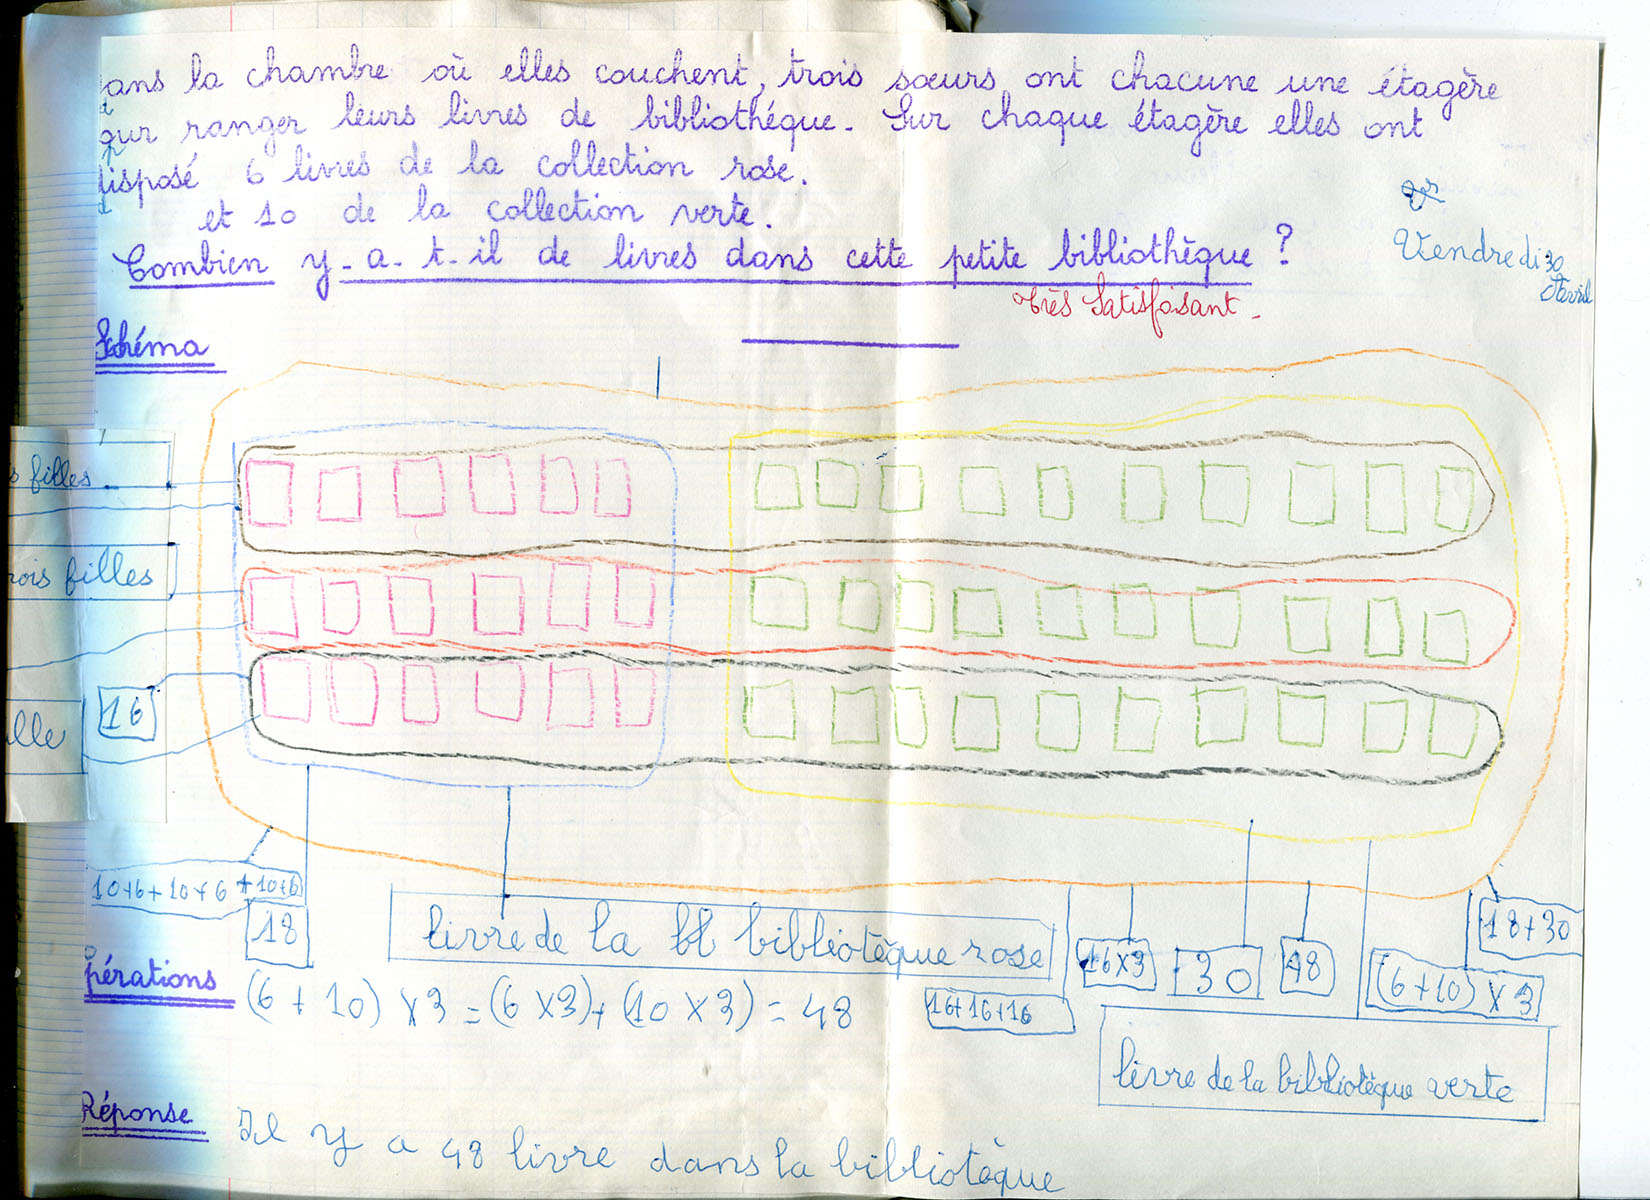 ans la chambre où elles couchent, trois sœurs ont chacune une étagère
our ranger leurs livres de bibliothéque. Sur chaque étagère elles ont
disposé 6 livres de la collection rose.
et 10 de la collection verte.
Combien y-a-t-il de livres dans cette petite bibliothèque ?
Vendredi 30
Avril
très Satisfaisant.
Schéma
s filles
rois filles
16
lle
10+6+10+6+10+6
18
livre de la bl bibliotèque rose
16x3
30
48
18+30
(6+10) x 3
16+16+16
Opérations
(6 + 10) x 3 = (6 x 3) + (10 x 3) = 48
livre de la bibliotèque verte
Réponse
Il y a 48 livre dans la bibliotèque